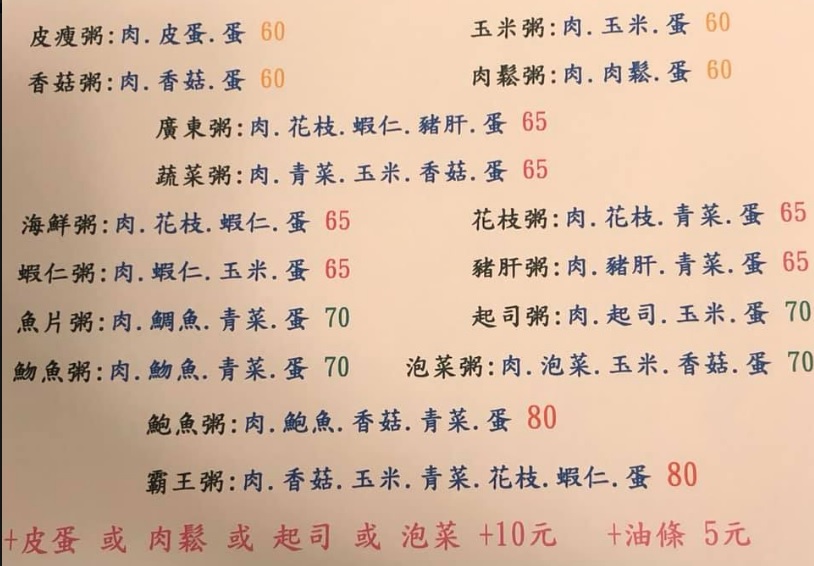 皮瘦粥:肉.皮蛋.蛋 60 玉米粥:肉.玉米.蛋 60
香菇粥:肉.香菇.蛋 60 肉鬆粥:肉.肉鬆.蛋 60
廣東粥:肉.花枝.蝦仁.豬肝.蛋 65
蔬菜粥:肉.青菜.玉米.香菇.蛋 65
海鮮粥:肉.花枝.蝦仁.蛋 65 花枝粥:肉.花枝.青菜.蛋 65
蝦仁粥:肉.蝦仁.玉米.蛋 65 豬肝粥:肉.豬肝.青菜.蛋 65
魚片粥:肉.鯛魚.青菜.蛋 70 起司粥:肉.起司.玉米.蛋 70
魩魚粥:肉.魩魚.青菜.蛋 70 泡菜粥:肉.泡菜.玉米.香菇.蛋 70
鮑魚粥:肉.鮑魚.香菇.青菜.蛋 80
霸王粥:肉.香菇.玉米.青菜.花枝.蝦仁.蛋 80
+皮蛋 或 肉鬆 或 起司 或 泡菜 +10元 +油條 5元